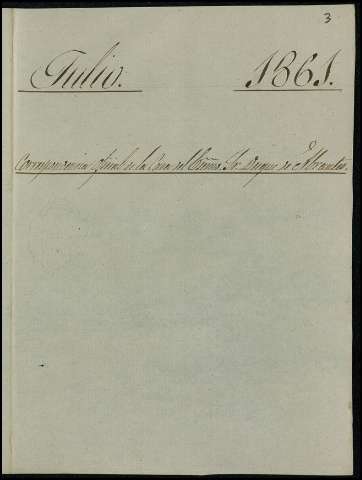 3
Julio. 1861.
Correspondencia oficial de la Casa del Excmo. Sr. Duque de Abrantes.